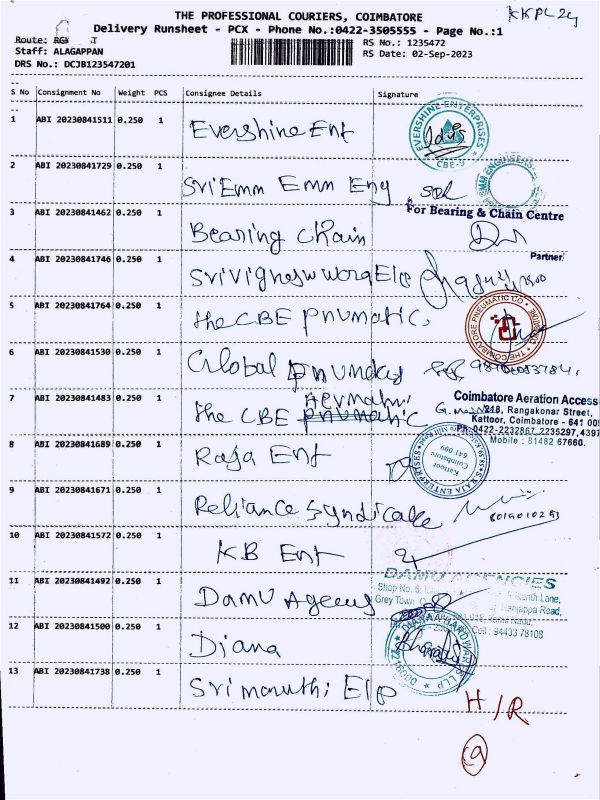 THE PROFESSIONAL COURIERS, COIMBATORE
KKPL 24
Delivery Runsheet - PCX - Phone No.:0422-3505555 - Page No.:1
Route:
RS No.: 1235472
Staff: ALAGAPPAN
RS Date: 02-Sep-2023
DRS No.: DCJB123547201
S No Consignment No Weight PCS Consignee Details Signature
1 ABI 20230841511 0.250 1 Evershine Ent
EVERSHINE ENTERPRISES
CBE-9
2 ABI 20230841729 0.250 1 Sri Emm Emm Eng
EMM ENGINEER
For Bearing & Chain Centre
3 ABI 20230841462 0.250 1 Bearing Chain
Partner
4 ABI 20230841746 0.250 1
5 ABI 20230841764 0.250 1 the CBE pnumatic
THE COIMBATORE PNEUMATIC CO.
6 ABI 20230841530 0.250 1 Global
7 ABI 20230841483 0.250 1 the CBE
Coimbatore Aeration Access
218, Rangakonar Street,
Kattoor, Coimbatore - 641 009
PH:0422-2232867, 2235297, 4397
Mobile : 81482 67660.
8 ABI 20230841689 0.250 1 Raja Ent
S RAJA ENTERPRISES
Kattoor
Coimbatore
641 009
9 ABI 20230841671 0.250 1 Reliance Syndicate
8019010253
10 ABI 20230841572 0.250 1 KB Ent
11 ABI 20230841492 0.250 1 Damu Agency
DAMU AGENCIES
Shop No. 6,
Grey Town,
Nanjappa Road,
Cell : 94433 78108
12 ABI 20230841500 0.250 1 Diana
13 ABI 20230841738 0.250 1 Sri maruthi Elp
H/R
9